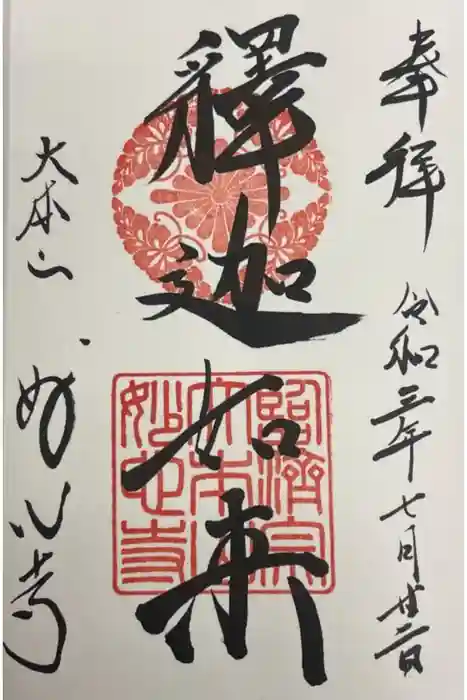 奉拝
令和三年七月廿二日
釋迦如来
臨濟宗
大本山
妙心寺
大本山
妙心寺